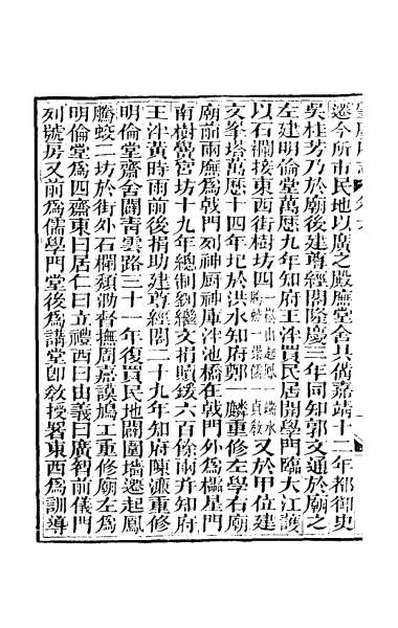 遷今所市民地以廣之殿廡堂舍具備嘉靖十二年都御史
吳桂芳乃於廟後建尊經閣隆慶三年同知郭文通於廟之
左建明倫堂萬歷九年知府王泮買民居開學門臨大江護
以石欄接東西街樹坊四一崧山起鳳一端水騰蛟一崇儒一貞教又於甲位建
文峯塔萬歷十四年圮於洪水知府鄭一麟重修左學右廟
廟前兩廡爲戟門列神厨神庫泮池橋在戟門外爲櫺星門
南樹黌宮坊十九年總制劉繼文捐贖鍰六百餘兩并知府
王泮黃時雨前後捐助建尊經閣二十九年知府陳濂重修
明倫堂齋舍闢青雲路三十一年復買民地闢圍墻遷起鳳
騰蛟二坊於街外石欄頹泐督撫周嘉謨鳩工重修廟左爲
明倫堂爲四齋東曰居仁曰立禮西曰由義曰廣智前儀門
列號房又前爲儒學門堂後爲講堂卽教授署東西爲訓導